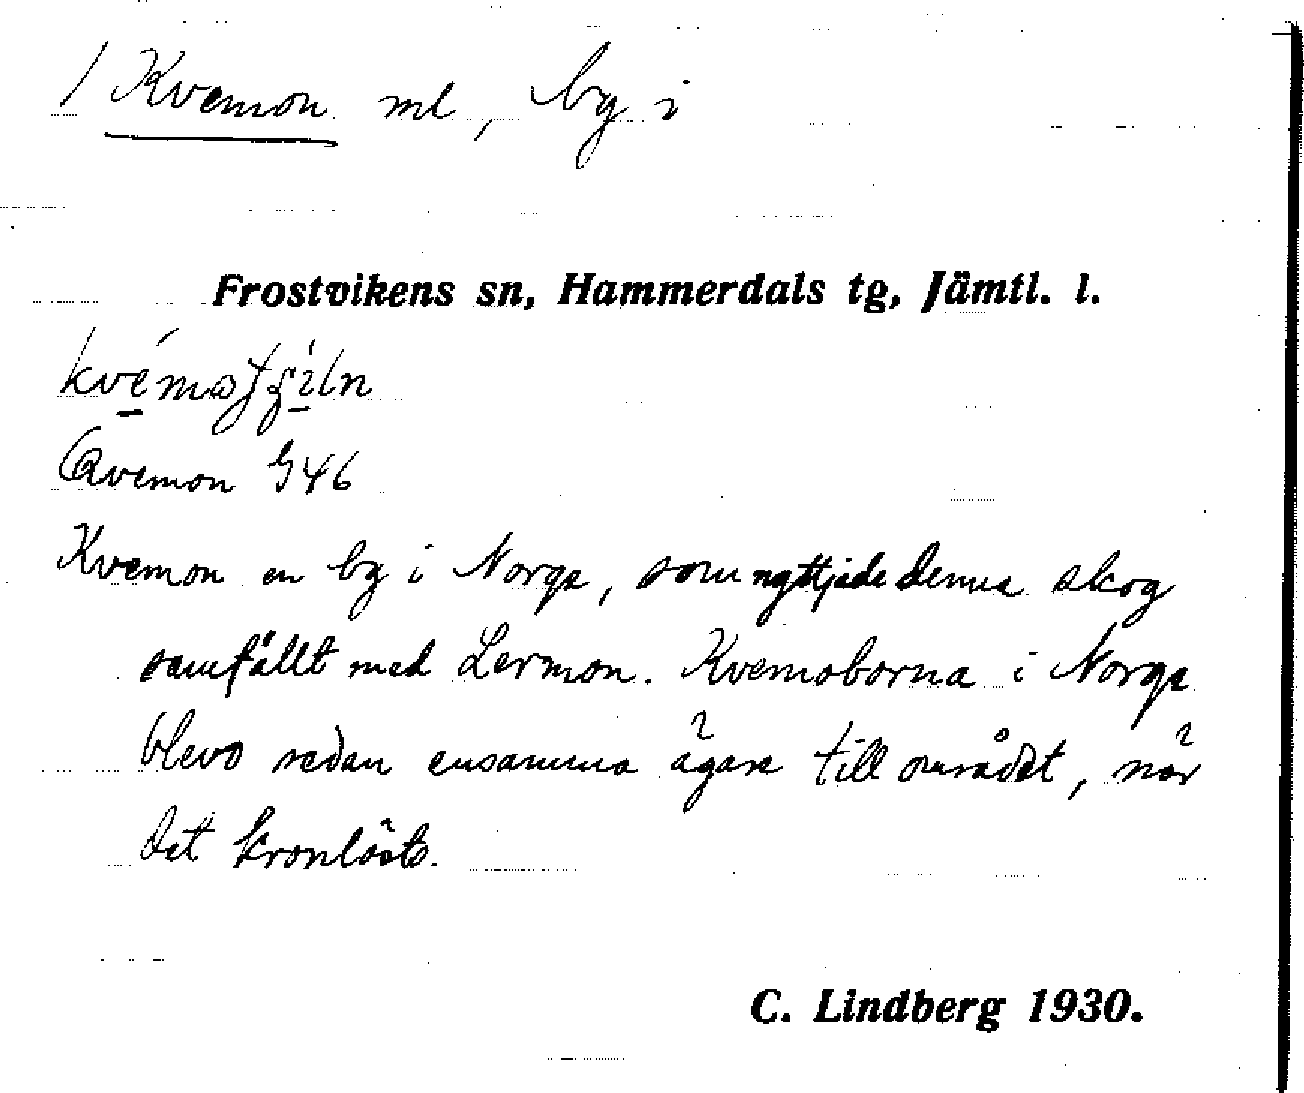 / Kvemon ml, by i
Frostvikens sn, Hammerdals tg, Jämtl. l.
Qvemon G46
Kvemon en by i Norge, som nyttjade denna skog
samfällt med Lermon. Kvemoborna i Norge
blevo sedan ensamma ägare till området, när
det kronlöste.
C. Lindberg 1930.